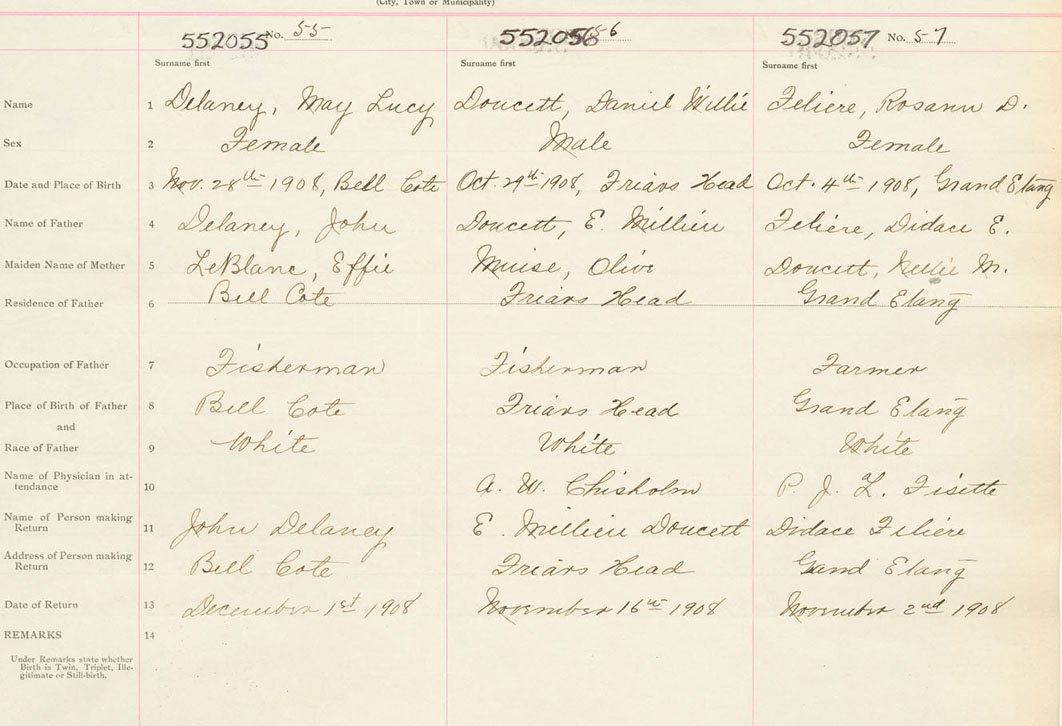 (City, Town or Municipality)
552055 No. 55 552056 56 552057 No. 57
Surname first Surname first Surname first
Name 1 Delaney, May Lucy Doucett, Daniel Willie Feliere, Rosann D.
Sex 2 Female Male Female
Date and Place of Birth 3 Nov. 28th 1908, Bell Cote Oct. 29th 1908, Friars Head Oct. 4th 1908, Grand Etang
Name of Father 4 Delaney, John Doucett, E. Millien Feliere, Didace E.
Maiden Name of Mother 5 LeBlanc, Effie Muise, Olive Doucett, Nellie M.
Residence of Father 6 Bell Cote Friars Head Grand Etang
Occupation of Father 7 Fisherman Fisherman Farmer
Place of Birth of Father 8 Bell Cote Friars Head Grand Etang
and
Race of Father 9 White White White
Name of Physician in at-
tendance 10 A. W. Chisholm P. J. L. Fisette
Name of Person making
Return 11 John Delaney E. Millien Doucett Didace Feliere
Address of Person making
Return 12 Bell Cote Friars Head Grand Etang
Date of Return 13 December 1st 1908 November 16th 1908 November 2nd 1908
REMARKS 14
Under Remarks state whether
Birth is Twin, Triplet, Ille-
gitimate or Still-birth.